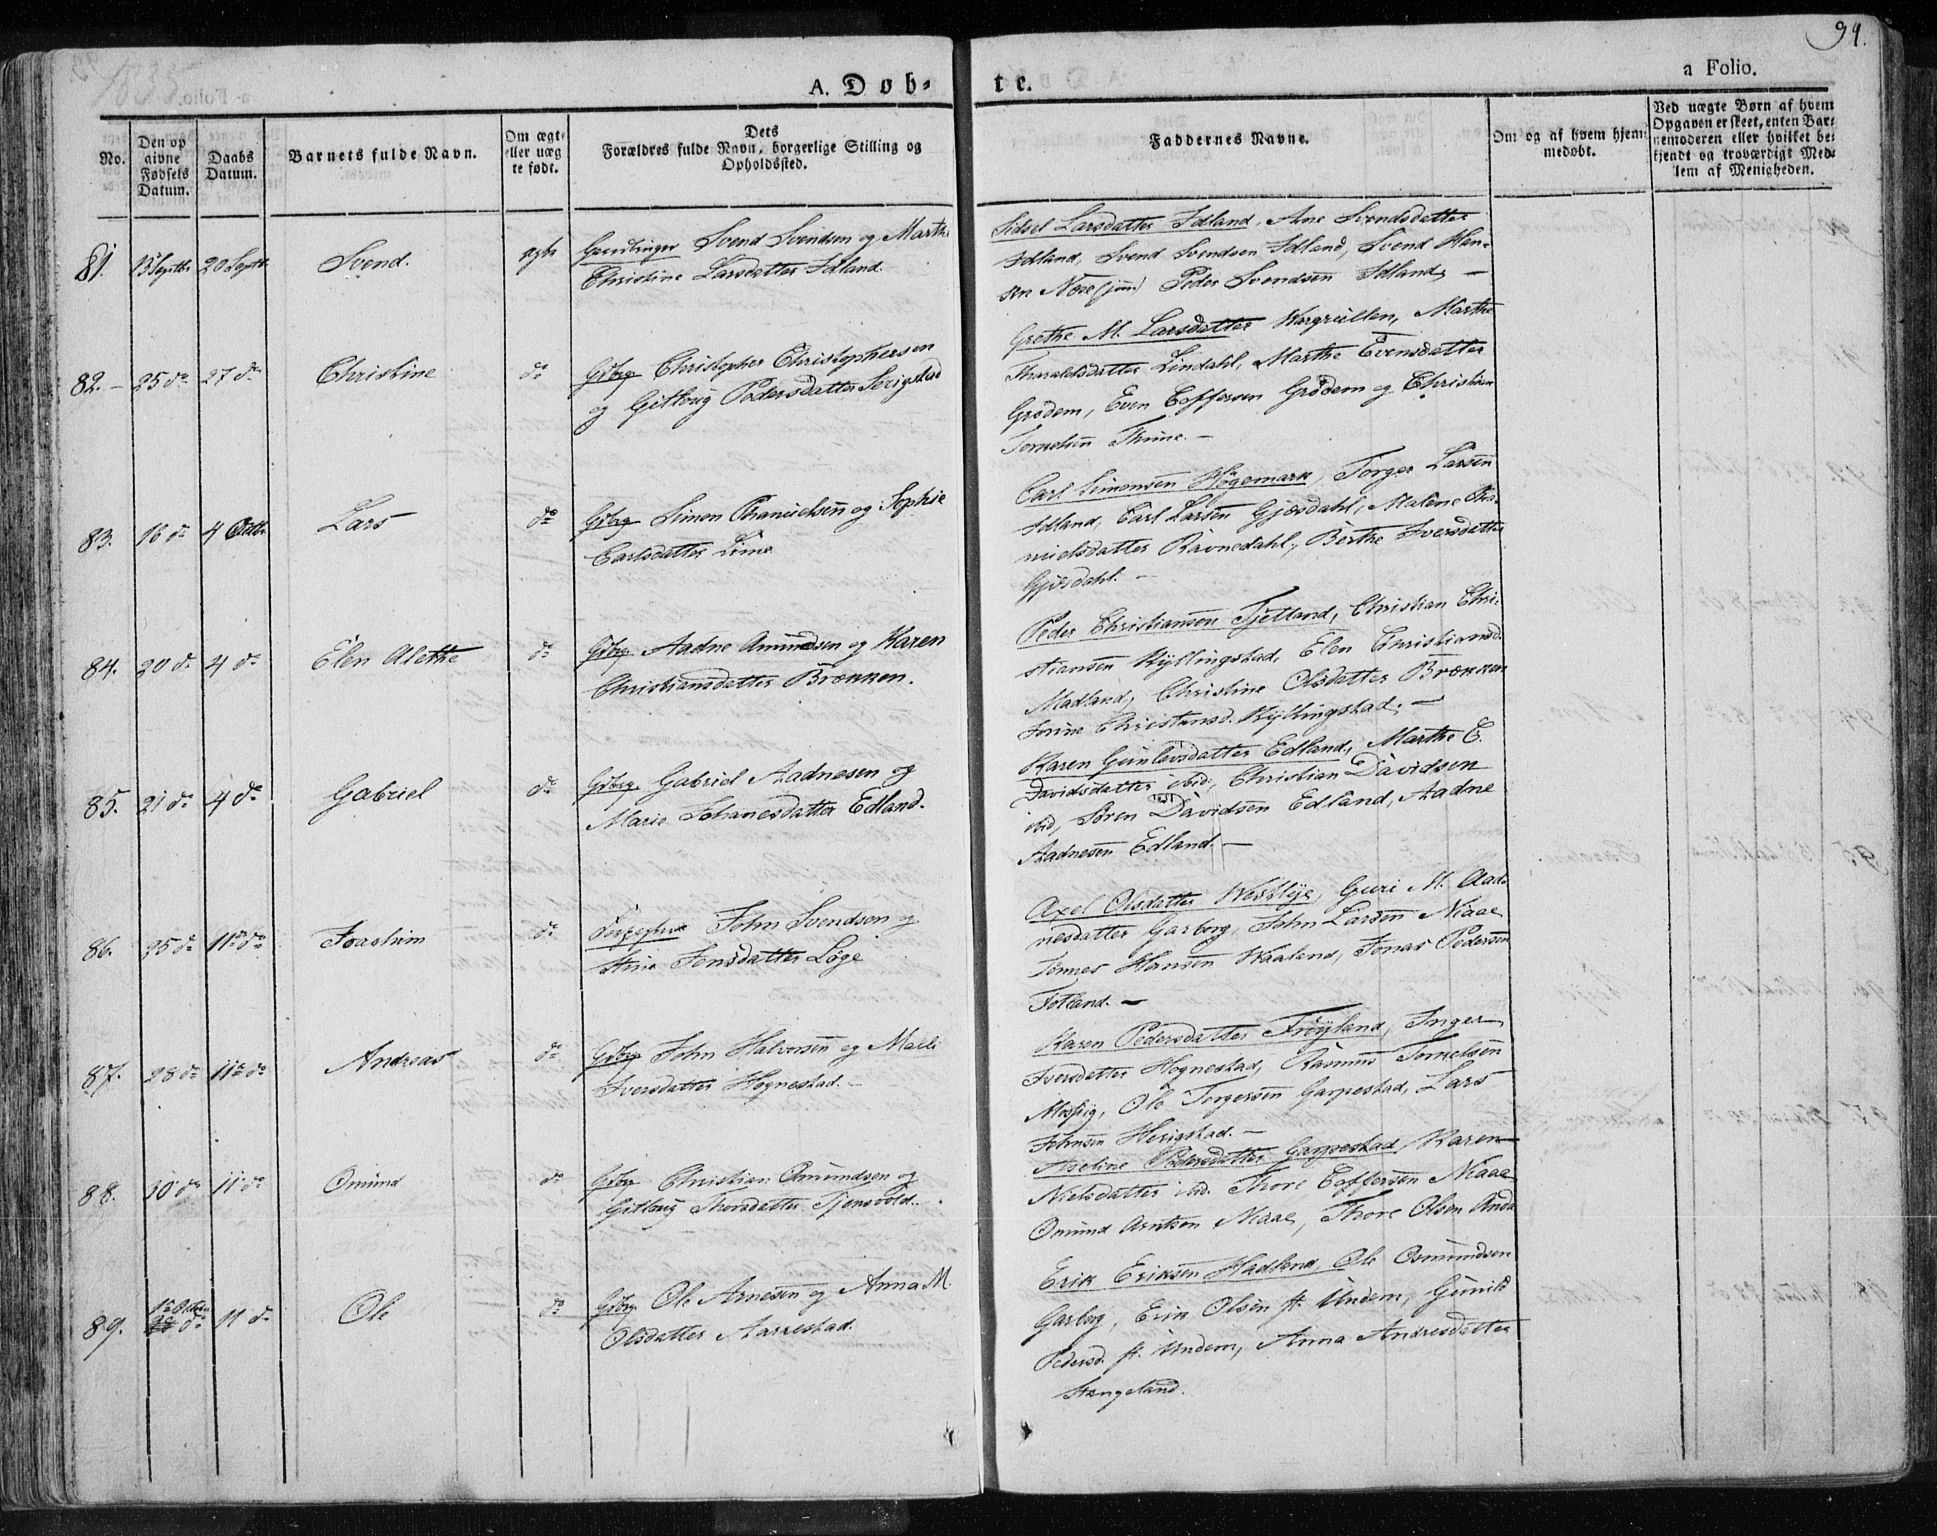 1835
94.
A. Døb-
te.
a Folio.
No.
Den opgivne Fødsels Datum.
Daabs Datum.
Barnets fulde Navn.
Om ægte eller uægte født.
Dets Forældres fulde Navn, borgerlige Stilling og Opholdssted.
Faddernes Navne.
Om og af hvem hjemmedøbt.
Ved uægte Børn af hvem
Opgaven er skeet, enten Bar-
nemoderen eller hvilket be-
kjendt og troværdigt Med-
lem af Menigheden.
81. 13 Septbr 20 Septbr Svend. ægte Svend Svendsen og Marthe
Christine Larsdatter Idland.
Sidsel Larsdatter Idland, Ane Svendsdatter
Idland, Svend Svendsen Idland, Svend Han-
sen Nore (jun) Peder Svendsen Idland, —
82. – 25 do 27 do Christine do Gdbrg Christopher Christophersen
og Gitlaug Pedersdatter Serigstad
Grethe M. Larsdatter, Marthe
Tharaldsdatter Lindahl, Marthe Evensdatter
Grødem, Even Toffersen Grødem og Christian
Tornelsen Thime. –
83. 16 do 4 Octbr Lars do Gdbrg Simon Thanielsen og Sophie
Carlsdatter Lime
Carl Simonsen Høgemark, Torger Larsen
Idland, Carl Larsen Gjæsdahl, Malene Tha-
nielsdatter Ravnedahl, Berthe Iversdatter
Gjæsdahl. –
84. 20 do 4 do Elen Alethe do Gdbrg Aadne Amundsen og Karen
Christiansdatter Brækken.
Peder Christiansen Tjetland, Christian Chri-
stiansen Kyllingstad, Elen Christiansd.
Madland, Christine Olsdatter Brækken
Serine Christensd. Kyllingstad. –
85. 21 do 4 do Gabriel do Gdbrg. Gabriel Aadnesen og
Marie Johanesdatter Edland.
Karen Gunlevsdatter Edland, Marthe C.
Davidsdatter ibid, Christian Davidsen
ibid, Søren Davidsen Edland, Aadne
Aadnesen Edland. –
86. 25 do 11te do Joachim do John Svendsen og
Stine Jensdatter Løge
Axel Olsdatter Westlye, Guri M. Aad-
nesdatter Garborg, John Larsen Niaae
Tønnes Hansen Waaland, Jonas Pedersen
Fotland. –
87. 28 do 11te do Andreas do Gdbrg John Halvorsen og Malli
Iversdatter Hognestad. –
Karen Pedersdatter Frøyland, Inger
Iversdatter Hognestad, Rasmus Tornelsen
Mossig, Ole Torgersen Garpestad, Lars
Johnsen Herigstad. –
88. 30 do 11 do Omund do Gdbrg Christian Omundsen og
Gitlaug Thorsdatter Tjensvold.
Aseline Pedersdatter Garpestad, Karen
Nielsdatter ibid. Thore Toffersen Niaae
Omund Arntsen Niaae, Thore Olsen Anda
89. 1te Octbr 11 do Ole do Gdbrg Ole Arnesen og Anna M.
Olsdatter Aarrestad.
Erik Eriksen Hadland, Ole Osmundsen
Garborg, Erik Olsen st. Undem, Gunild
Pedersd. st. Undem, Anna Andresdatter
Stangeland.